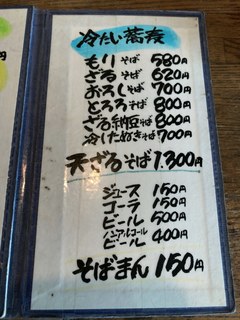 冷たい蕎麦
もりそば 580円
ざるそば 620円
おろしそば 700円
とろろそば 800円
ざる納豆そば 800円
冷したぬきそば 700円
天ざるそば 1.300円
ジュース 150円
コーラ 150円
ビール 500円
ノンアルコール
ビール 400円
そばまん 150円